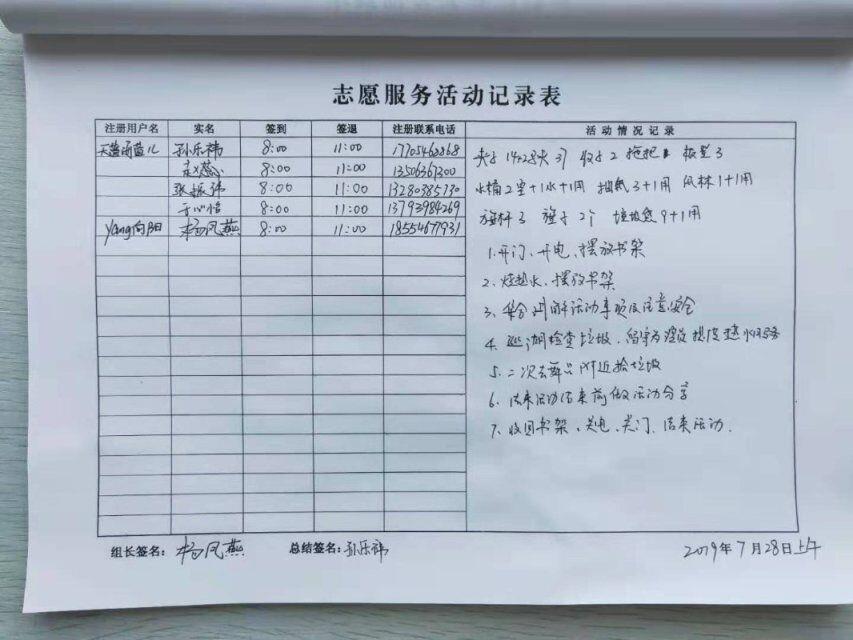 志愿服务活动记录表
注册用户名 实名 签到 签退 注册联系电话 活动情况记录
孙乐祎 8:00 11:00 17705462868
赵蕊 8:00 11:00 13506367300
张振祎 8:00 11:00 13280385730
于心怡 8:00 11:00 13793984269
yang向阳 杨凤燕 8:00 11:00 18554677931
夹子 14+28夹 3 2 拖把 3
水桶2里+1水+1用 抽纸3+1用 纸杯1+1用
旗杆3 旗子2个 垃圾袋9+1用
1.开门、开电、摆放书架
2.烧热水、摆放书架
3.集合讲解活动事项及注意安全
4.巡湖检查垃圾、留守方
5.二次去 附近捡垃圾
6.结束活动结束前做活动分享
7.收回书架、关电、关门、结束活动.
组长签名: 杨凤燕 总结签名: 孙乐祎 2019年7月28日上午